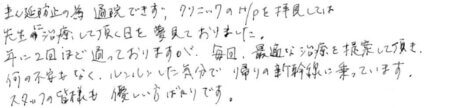 まん延防止の為 通院できず、クリニックのH/Pを拝見しては
先生に治療して頂く日を夢見ておりました。
年に2回ほど通っておりますが、毎回、最適な治療を提案して頂き、
何の不安もなく、ルンルンした気分で帰りの新幹線に乗っています。
スタッフの皆様も優しい方ばかりです。